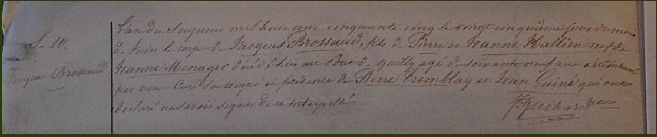 S. 10.
Jacques Brossaud
L'an du Seigneur mil huit cent cinquante cinq le vingt cinquième jour du mois
de Juin le corps de Jacques Brossaud, fils de Pierre et Jeanne Hallien veuf de
Jeanne Menager décédé hier au bourg de quilly agé de soixante neuf ans a été inhumé
par nous Curé soussigné en présence de Pierre Tremblay et Jean Guiné qui ont
déclaré ne savoir signer de ce interpellés